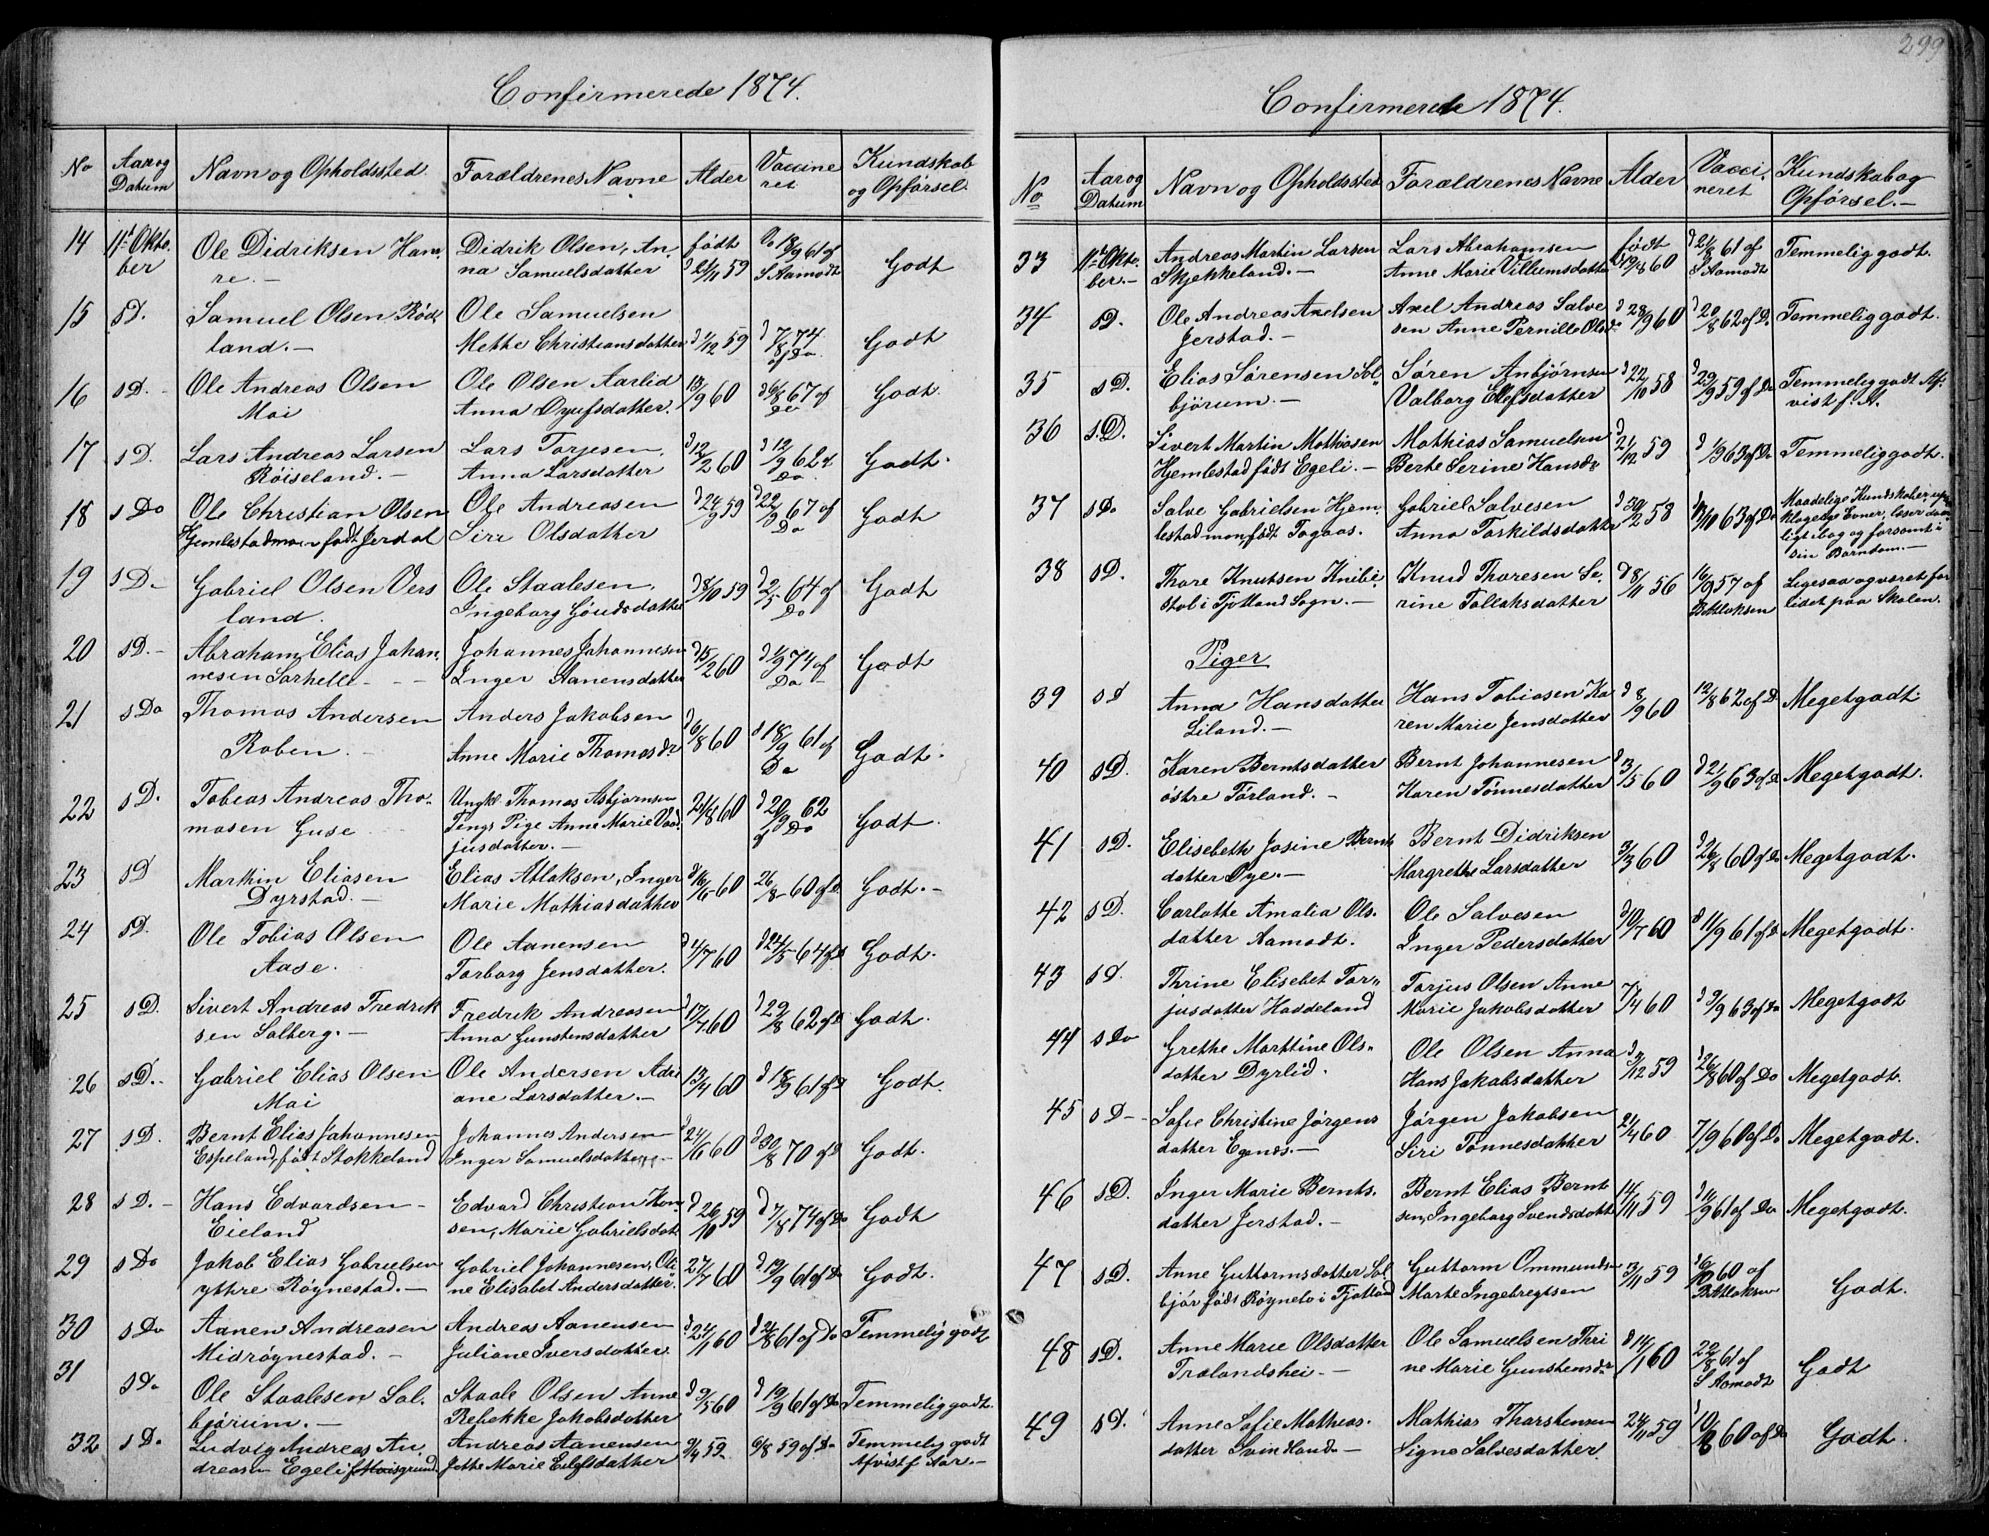 Confirmerede 1874.
No
Aar og Datum
Navn og Opholdssted
Forældrenes Navne
Alder
Vaccineret
Kundskab og Opførsel
14 11te Oktober
Ole Didriksen Hanre. —
Didrik Olsen, Anna Samuelsdatter
født d 21/11 59
d 18/9 61 af S. Aamodt
Godt
15 s D.
Samuel Olsen Rødland. —
Ole Samuelsen
Mette Christiansdatter
d 1/12 59
d 7/8 74 af Do
Godt
16 s D. —
Ole Andreas Olsen
Moi
Ole Olsen Aarlid
Anna Oyufsdatter.
13/9 60
d 6/8 67 af Do
Godt.
17 s D.
Lars Andreas Larsen
Røiseland. —
Lars Torjesen,
Anna Larsdatter
d 12/2 60
d 12/9 62 af Do
Godt.
18 s Do
Ole Christian Olsen
Hjemlestadmoen født Jerdal
Ole Andreasen
Siri Olsdatter
d 24/9 59
d 22/9 67 af Do
Godt
19 s D. —
Gabriel Olsen Versland.
Ole Staalesen,
Ingeborg Gaudsdatter
d 8/10 59
d 2/5 64 af Do
Godt
20 s D. —
Abraham Elias Johannesen Sørhelle — —
Johannes Johannesen
Inger Aanensdatter
d 15/2 60
d 1/9 74 af Do
Godt
21 s Do
Thomas Andersen
Raben. —
Anders Jakobsen
Anne Marie Thomasdr
d 6/8 60
d 18/9 61 af Do
Godt.
22 s D.
Tobias Andreas Thomasen Guse
Ungk. Thomas Asbjørnsen
Tengs Pige Anne Marie
jusdatter. —
21/8 60
d 20/9 62 af Do
Godt.
23 s D
Martin Eliasen
Dyrstad. —
Elias Atlaksen, Inger
Marie Mathiasdatter
26/8 60 af D
Godt. —
24 s D.
Ole Tobias Olsen
Aase.
Ole Aanensen
Torborg Jensdatter.
d 1/7 60
d 24/5 64 af D
Godt.
25 s D.
Sivert Andreas Fredriksen Solberg. —
Fredrik Andreasen
Anna Gunstensdatter
d 17/7 60
d 29/8 62 af D
Godt.
26 s D. —
Gabriel Elias Olsen
Moi
Ole Andersen Adriane Larsdatter. —
13/4 60
d 18/9 61 af D
Godt.
27 s D.
Bernt Elias Johannesen
Espeland, født Stokkeland
Johannes Andersen
Inger Samuelsdatter —
d 24/6 60
d 30/8 70 af D
Godt.
28 s D. —
Hans Edvardsen —
Eieland
Edvard Christian Hansen, Marie Gabrielsdat
d 26/10 59
d 7/8 74 af Do
Godt
29 s Do
Jakob Elias Gabrielsen
yttre Røynestad. —
Gabriel Johannesen, Oline Elisabet Andersdatter.
27/7 60
d 19/9 61 af Do
Godt.
30 s Do
Aanen Andreasen
Midrøynestad. —
Andreas Aanensen
Juliane Iversdatter
d 24/1 60
d 2/8 61 af Do
Temmelig godt
31 s Do
Ole Staalesen Solbjørum. —
Staale Olsen Anne
Rebekke Jakobsdatter
d 9/5 60
d 19/9 61 af Do
Temmelig godt.
32 s Do
Ludvig Andreas Andreasen Egeli
Andreas Aanensen
Jotte Marie Eilefsdatter
9/4 59
6/8 59 af Do
Temmelig godt
Afvist f. Aar. —
299
Confirmerede 1874.
No
Aar og Datum
Navn og Opholdssted
Forældrenes Navne
Alder
Vaccineret
Kundskab og Opførsel. —
33 11te Oktober. —
Andreas Martin Larsen
Skjekkeland. —
Lars Abrahamsen
Anne Marie Villumsdatter
født d 19/8 60
d 21/8 61 af S Aamodt
Temmelig godt.
34 s D.
Ole Andreas Axelsen
Jerstad. —
Axel Andreas Salvesen Anne Pernille Olsd.
d 28/9 60
d 20/8 62 af Do
Temmelig godt.
35 s D.
Elias Sørensen Solbjørum. —
Søren Anbjørnsen
Valborg Elefsdatter
d 22/10 58
d 29/9 59 af Do
Temmelig godt Afvist f. A.
36 s. D.
Sivert Martin Mathiasen
Hjemlestad født Egeli. —
Mathias Samuelsen
Berte Serine Hansdr
d 21/12 59
d 1/9 63 af Do
Temmelig godt.
37 s Do
Salve Gabrielsen Hjemlestadmoen, født Togaas.
Gabriel Salvesen
Anna Taskildsdatter
d 30/2 58
63 af Do
Maadelige Kundskaber,
Evner, læser
i bog og forsømt i
sin Barndom. —
38 s D.
Thore Knutsen Knibestol i Fjotland Sogn. —
Knud Thoresen Serine Tollaksdatter
d 8/11 56
16/9 57 af B. Atlaksen
Ligesaa og været for
lidet paa Skolen.
Piger
39 s d
Anna Hansdatter
Liland. —
Hans Tobiasen Karen Marie Jensdatter
d 8/9 60
12/8 62 af D
Meget godt
40 s D.
Karen Berntsdatter
østre Førland. —
Bernt Johannesen
Karen Tønnesdatter
d 3/5 60
d 21/9 63 af Do
Meget godt.
41 s D.
Elisebeth Josine Berntsdatter Øye. —
Bernt Didriksen
Margrethe Larsdatter
3/3 60
d 26/8 60 af Do
Meget godt.
42 s D.
Carlotte Amalia Olsdatter Aamodt.
Ole Salvesen
Inger Pedersdatter
d 10/7 60
d 11/9 61 af D
Meget godt.
43 s D.
Thrine Elisebet Torjusdatter Haddeland
Torjus Olsen Anne
Marie Jakobsdatter
7/4 60
d 9/9 63 af Do
Meget godt
44 s Do
Grethe Marttine Olsdatter Dyrlid.
Ole Olsen Anna
Hans Jakobsdatter
d 9/12 59
d 26/8 60 af Do
Meget godt.
45 s D —
Sofie Christine Jørgensdatter Egenæs. —
Jørgen Jakobsen
Siri Tønnesdatter
2/4 60
7/9 60 af Do
Meget godt.
46 s D.
Inger Marie Berntsdatter Jerstad. —
Bernt Elias Berntsen, Ingeborg Svendsdatt
14/11 59
d 11/9 61 af Do
Meget godt.
47 s D.
Anne Guttormsdatter Solbjør født Røynebo i Fjotland
Guttorm Ommundsen
Marte Ingebregtsen
13/11 59
60 af B. Atlaksen
Godt.
48 s D.
Anne Marie Olsdatter
Trælandshei. —
Ole Samuelsen Thrine Marie Gunstensdr
d 14/1 60
22/8 61 af S Aamodt
Godt
49 s D.
Anne Sofie Mathiasdatter Svindland. —
Mathias Tharstensen
Signe Salvesdatter.
24/11 59
d 10/8 60 af Do
Godt.